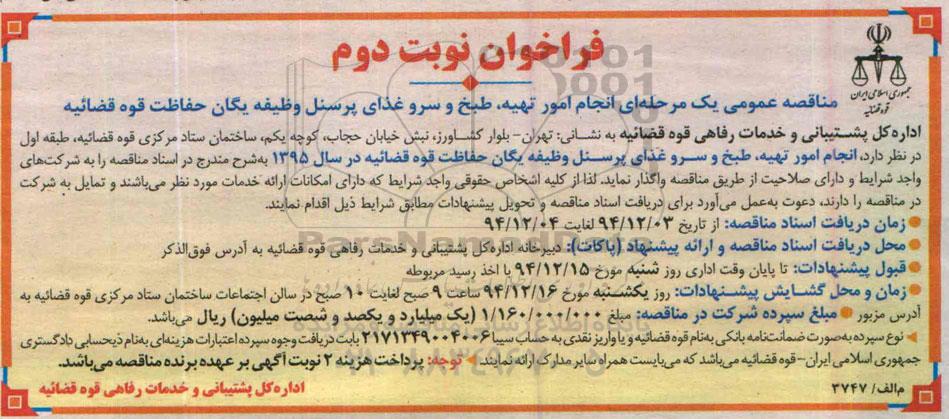 فراخوان نوبت دوم
جمهوری اسلامی ایران
قوه قضائیه
مناقصه عمومی یک مرحله‌ای انجام امور تهیه، طبخ و سرو غذای پرسنل وظیفه یگان حفاظت قوه قضائیه
اداره‌کل پشتیبانی و خدمات رفاهی قوه قضائیه به نشانی: تهران- بلوار کشاورز، نبش خیابان حجاب، کوچه یکم، ساختمان ستاد مرکزی قوه قضائیه، طبقه اول
در نظر دارد، انجام امور تهیه، طبخ و سرو غذای پرسنل وظیفه یگان حفاظت قوه قضائیه در سال ۱۳۹۵ به‌شرح مندرج در اسناد مناقصه را به شرکت‌های
واجد شرایط و دارای صلاحیت از طریق مناقصه واگذار نماید. لذا از کلیه اشخاص حقوقی واجد شرایط که دارای امکانات ارائه خدمات مورد نظر می‌باشند و تمایل به شرکت
در مناقصه را دارند، دعوت به‌عمل می‌آورد برای دریافت اسناد مناقصه و تحویل پیشنهادات مطابق شرایط ذیل اقدام نمایند.
● زمان دریافت اسناد مناقصه: از تاریخ ۹۴/۱۲/۰۳ لغایت ۹۴/۱۲/۰۴
● محل دریافت اسناد مناقصه و ارائه پیشنهاد (پاکات): دبیرخانه اداره‌کل پشتیبانی و خدمات رفاهی قوه قضائیه به آدرس فوق‌الذکر
● قبول پیشنهادات: تا پایان وقت اداری روز شنبه مورخ ۹۴/۱۲/۱۵ با اخذ رسید مربوطه
● زمان و محل گشایش پیشنهادات: روز یکشنبه مورخ ۹۴/۱۲/۱۶ ساعت ۹ صبح لغایت ۱۰ صبح در سالن اجتماعات ساختمان ستاد مرکزی قوه قضائیه به
آدرس مزبور ● مبلغ سپرده شرکت در مناقصه: مبلغ ۱/۱۶۰/۰۰۰/۰۰۰ (یک میلیارد و یکصد و شصت میلیون) ریال می‌باشد.
نوع سپرده به‌صورت ضمانت‌نامه بانکی به‌نام قوه قضائیه و یا واریز نقدی به حساب سیبا ۲۱۷۱۳۴۹۰۰۴۰۰۶ بابت دریافت وجوه سپرده اعتبارات هزینه‌ای به‌نام ذیحسابی دادگستری
جمهوری اسلامی ایران- قوه قضائیه می‌باشد که می‌بایست همراه سایر مدارک ارائه نمایند. توجه: پرداخت هزینه ۲ نوبت آگهی بر عهده برنده مناقصه می‌باشد.
م‌الف/ ۳۷۴۷
اداره‌کل پشتیبانی و خدمات رفاهی قوه قضائیه